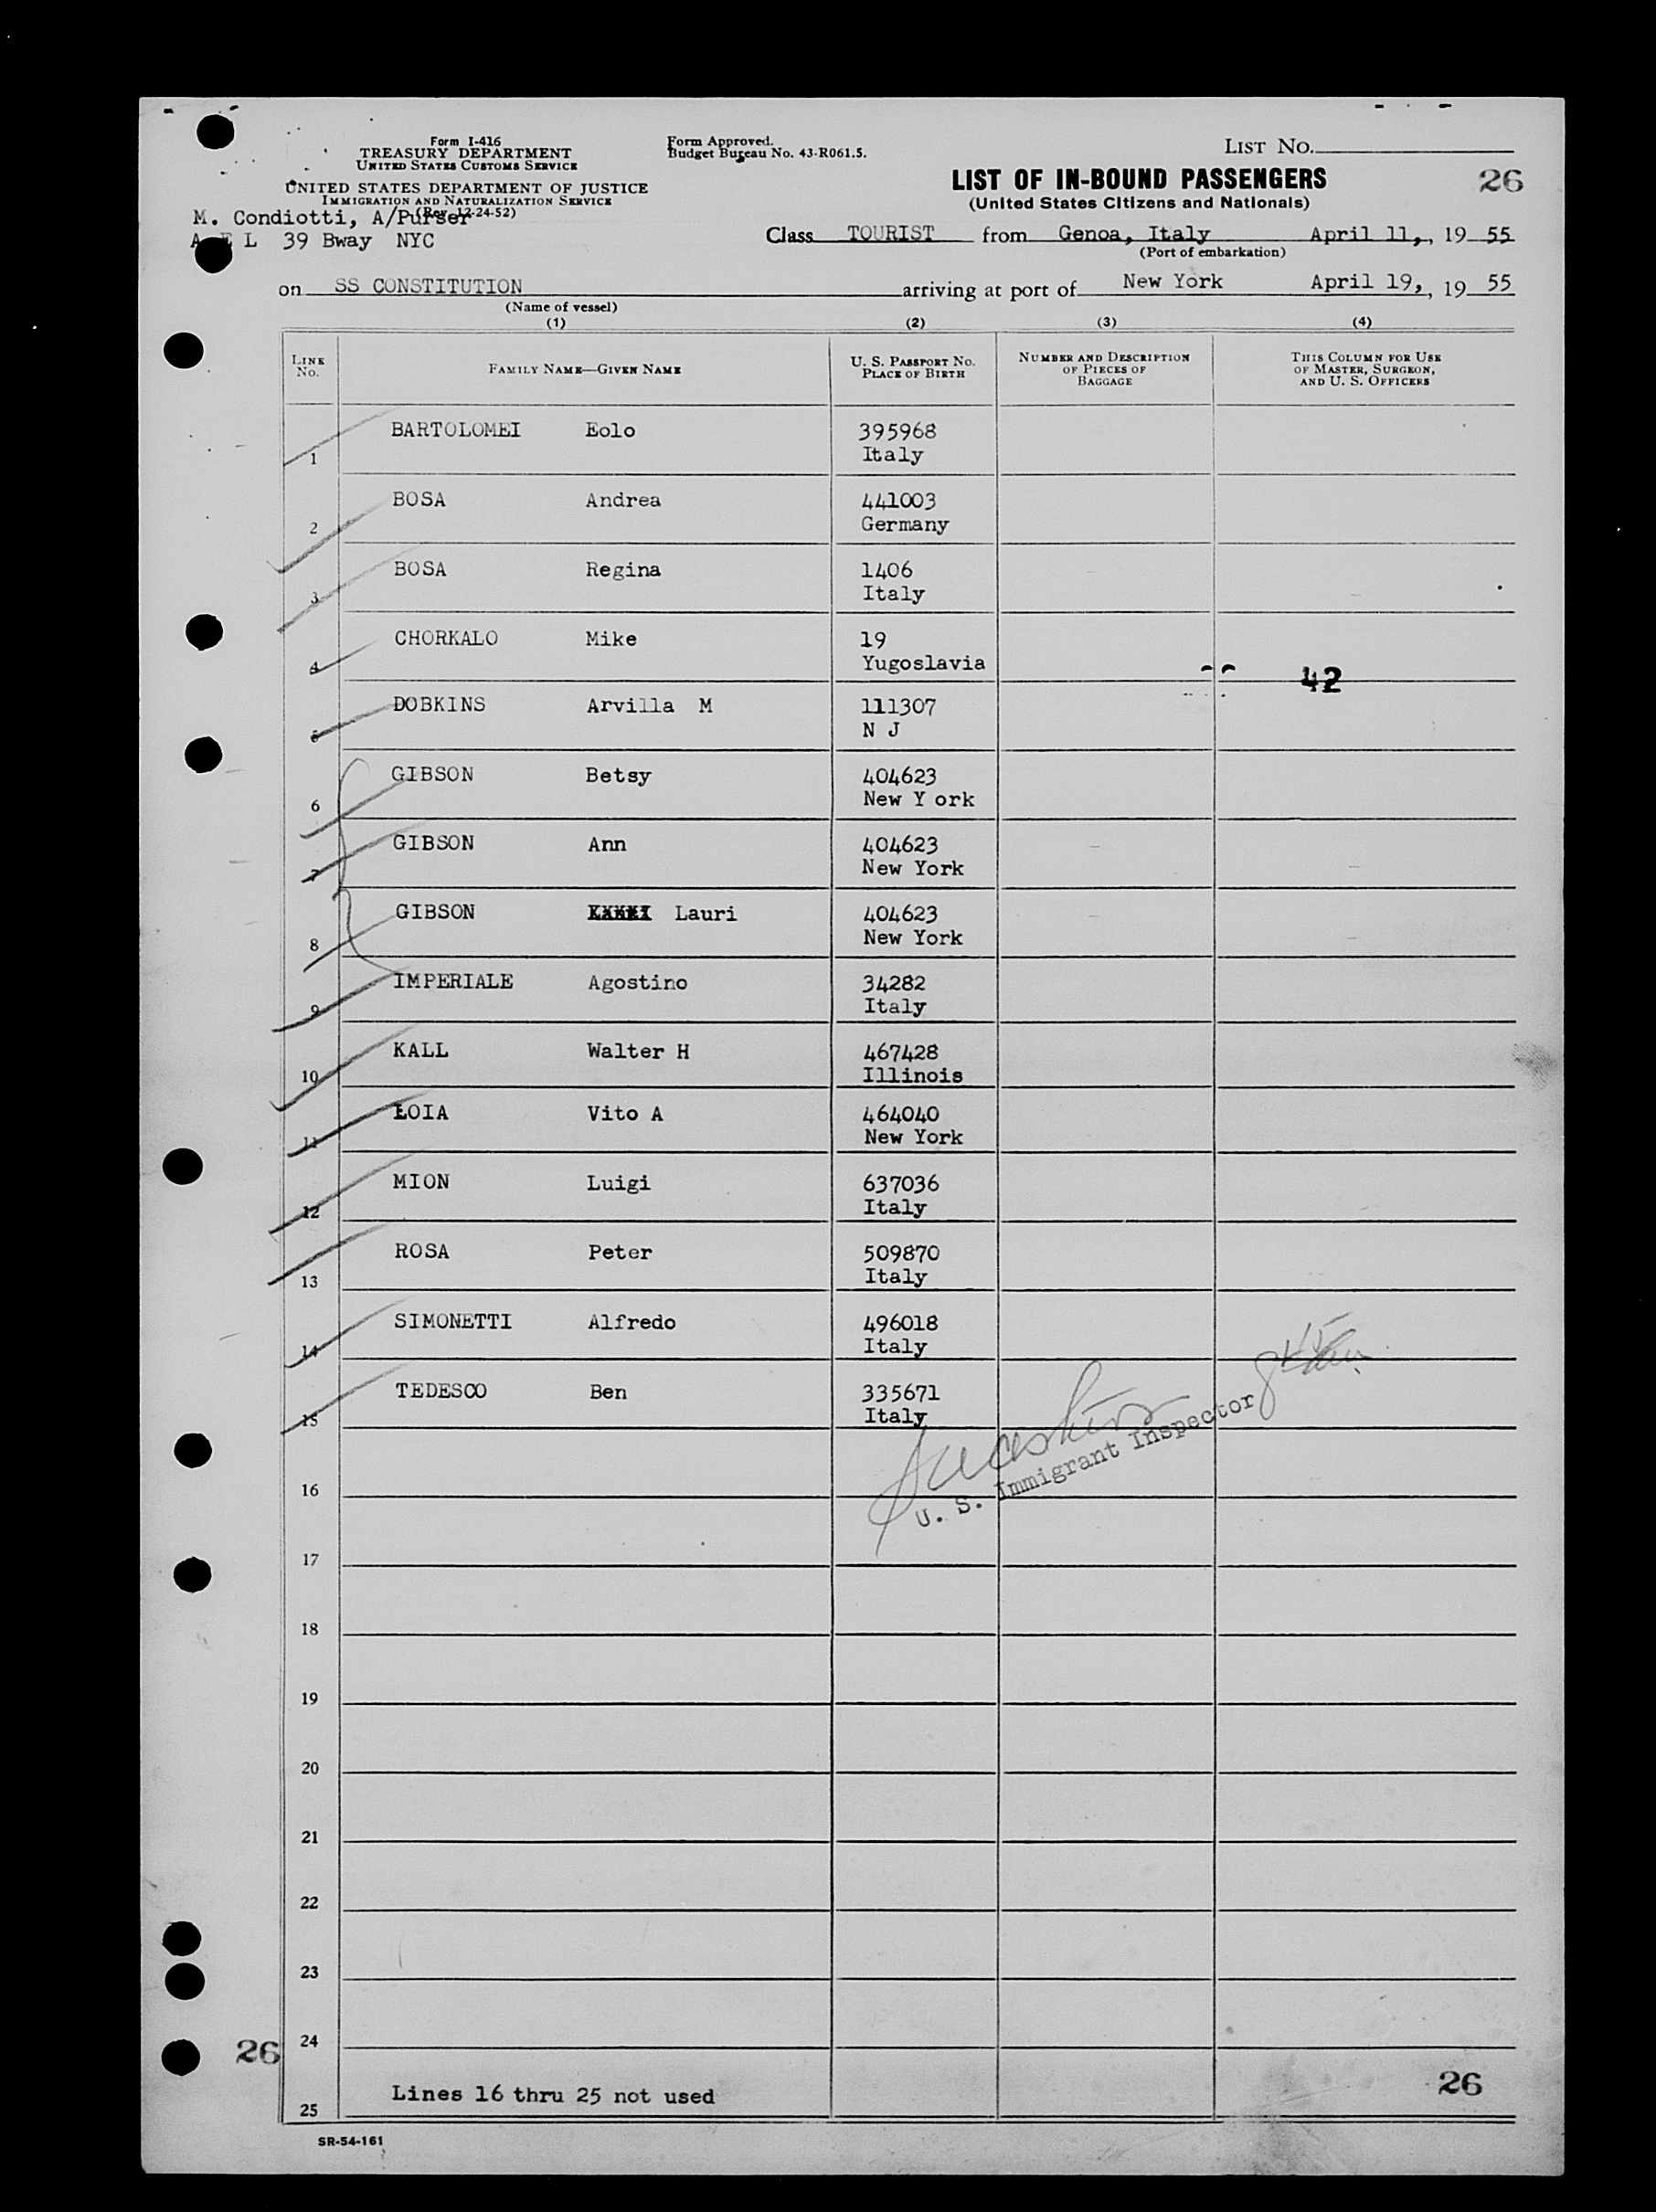 Form I-416
TREASURY DEPARTMENT
UNITED STATES CUSTOMS SERVICE
UNITED STATES DEPARTMENT OF JUSTICE
IMMIGRATION AND NATURALIZATION SERVICE
(Rev. 12-24-52)
M. Condiotti, A/Purser
A E L 39 Bway NYC
Form Approved.
Budget Bureau No. 43-R061.5.
LIST NO.
LIST OF IN-BOUND PASSENGERS
26
(United States Citizens and Nationals)
Class TOURIST from Genoa, Italy April 11,, 19 55
(Port of embarkation)
on SS CONSTITUTION arriving at port of New York April 19,, 19 55
(Name of vessel)
(1) (2) (3) (4)
LINE NO.
FAMILY NAME—GIVEN NAME
U. S. PASSPORT NO.
PLACE OF BIRTH
NUMBER AND DESCRIPTION
OF PIECES OF
BAGGAGE
THIS COLUMN FOR USE
OF MASTER, SURGEON,
AND U. S. OFFICERS
BARTOLOMEI Eolo 395968
1 Italy
BOSA Andrea 441003
2 Germany
BOSA Regina 1406
3 Italy
CHORKALO Mike 19
4 Yugoslavia
42
DOBKINS Arvilla M 111307
5 N J
GIBSON Betsy 404623
6 New Y ork
GIBSON Ann 404623
7 New York
GIBSON Lauri 404623
8 New York
IMPERIALE Agostino 34282
9 Italy
KALL Walter H 467428
10 Illinois
LOIA Vito A 464040
11 New York
MION Luigi 637036
12 Italy
ROSA Peter 509870
13 Italy
SIMONETTI Alfredo 496018
14 Italy
TEDESCO Ben 335671
15 Italy
U. S. Immigrant Inspector
16
17
18
19
20
21
22
23
24
26
Lines 16 thru 25 not used
26
25
SR-54-161